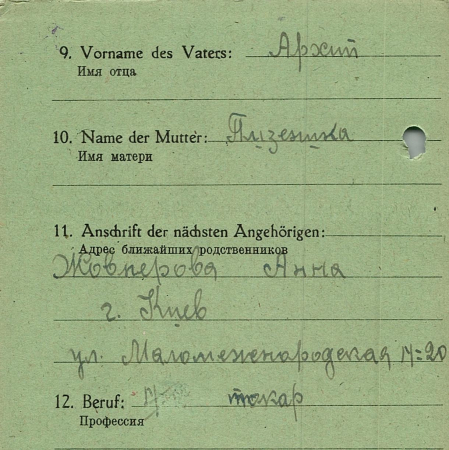 9. Vorname des Vaters: Архип
Имя отца
10. Name der Mutter:
Имя матери
11. Anschrift der nächsten Angehörigen:
Адрес ближайших родственников
Жовнерова Анна
г. Киев
ул. 20
12. Beruf: токар
Профессия